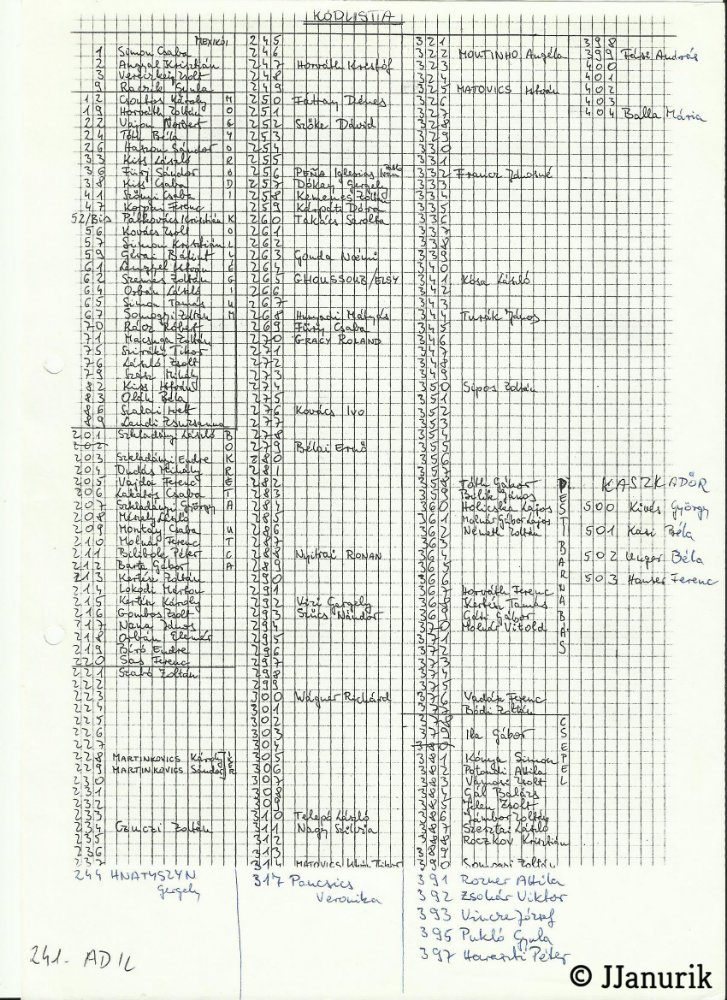 KÓDLISTA
MEXIKÓI
1 Simon Csaba
2 Angyal Krisztián
3 Vereczkei Zsolt
9 Rácz Gyula
12 Csontos Károly
19 Horváth Zoltán
22 Vajon Norbert
24 Tóth Béla
26 Hassan Sándor
33 Kiss László
36 Füsy Sándor
38 Kiss Csaba
41 Szőnyi Csaba
47 Korpai Ferenc
MOGYORÓDI
52/Bis Pálkovács Krisztián
56 Kovács Zsolt
57 Simon Krisztián
59 Gévai Bálint
61 Lengyel István
62 Szemes Zoltán
64 Orbán László
65 Simon Tamás
67 Somogyi Zoltán
KOLLÉGIUM
70 Rácz Róbert
71 Macsuga Zoltán
75 Sziráki Tibor
76 László Zsolt
79 Szász Mihály
82 Kiss István
83 Oláh Béla
86 Szalai
89 Landi Zsuzsanna
201 Szkladányi László
202
203 Szkladányi Endre
204 Dudás Mihály
205 Vajda Ferenc
206 Lakatos Csaba
207 Szkladányi György
208 Mészáros László
209 Montay Csaba
210 Molnár Ferenc
211 Bilibok Péter
212 Barta Gábor
BORKÉTA UTCA
213 Kertész Zoltán
214 Lokodi Márton
215 Kertész Károly
216 Gombos Zsolt
217 Nana János
218 Orbán Elemér
219 Bíró Endre
220 Sas Ferenc
221 Szabó Zoltán
222
223
224
225
226
227
228 MARTINKOVICS Károly
229 MARTINKOVICS Sándor
IKER
230
231
232
233
234 Czuczi Zoltán
235
236
237
244 HNATYSZYN
Gergely
241. ADIL
245
246
247 Horváth Kristóf
248
249
250 Fátray Dénes
251
252 Szőke Dávid
253
254
255
256 PEÑA Iglesias Pablo Iván
257 Dókay Gergely
258 Kemenes Zoltán
259 Kárpáti Dóra
260 Takács Sarolta
261
262
263 Gonda Noémi
264
265 GHOUSSOUB/ELSY
266
267
268 Hunyadi Mátyás
269 Füsy Csaba
270 GRACY ROLAND
271
272
273
274
275
276 Kovács Ivo
277
278
279 Bélai Ernő
280
281
282
283
284
285
286
287
288 Nyitrai RONAN
289
290
291
292 Vizi Gergely
293 Szűcs Nándor
294
295
296
297
298
299
300 Wágner Richárd
301
302
303
304
305
306
307
308
309
310 Telepó László
311 Nagy Szilvia
312
313
314 MATOVICS István Tibor
317 Pancsics
Veronika
321
322 MOUTINHO Angéla
323
324
325 MATOVICS István
326
327
328
329
330
331
332 Francz Jánosné
333
334
335
336
337
338
339
340
341 Kósa László
342
343
344 Turák János
345
346
347
348
349
350 Sipos Zoltán
351
352
353
354
355
356
357
358 Tóth Gábor
359 Bilik János
360 Holicska Lajos
361 Molnár Gábor Lajos
362 Németh Zoltán
363
364
365
366
367 Horváth Ferenc
368 Kertész Tamás
369 Gási Gábor
370 Molnár Vitold
371
372
373
374
375
376 Vadász Ferenc
377 Bódi Zoltán
PESTI BARNABÁS
378
379 Ila Gábor
380
381 Kónya Simon
382 Potondi Attila
383 Vámosi Zsolt
384 Gál Balázs
385 Jelen Zsolt
386 Jámbor Zoltán
387 Szesztai László
388 ROCZKOV Krisztián
389
390 Somsai Zoltán
CSEPEL
391 Rozner Attila
392 Zsohár Viktor
393 Vincze József
395 Pukló Gyula
397 Haraszti Péter
398
399 Fási András
400
401
402
403
404 Balla Mária
KASZKADŐR
500 Kives György
501 Kasi Béla
502 Unger Béla
503 Hauser Ferenc
© JJanurik